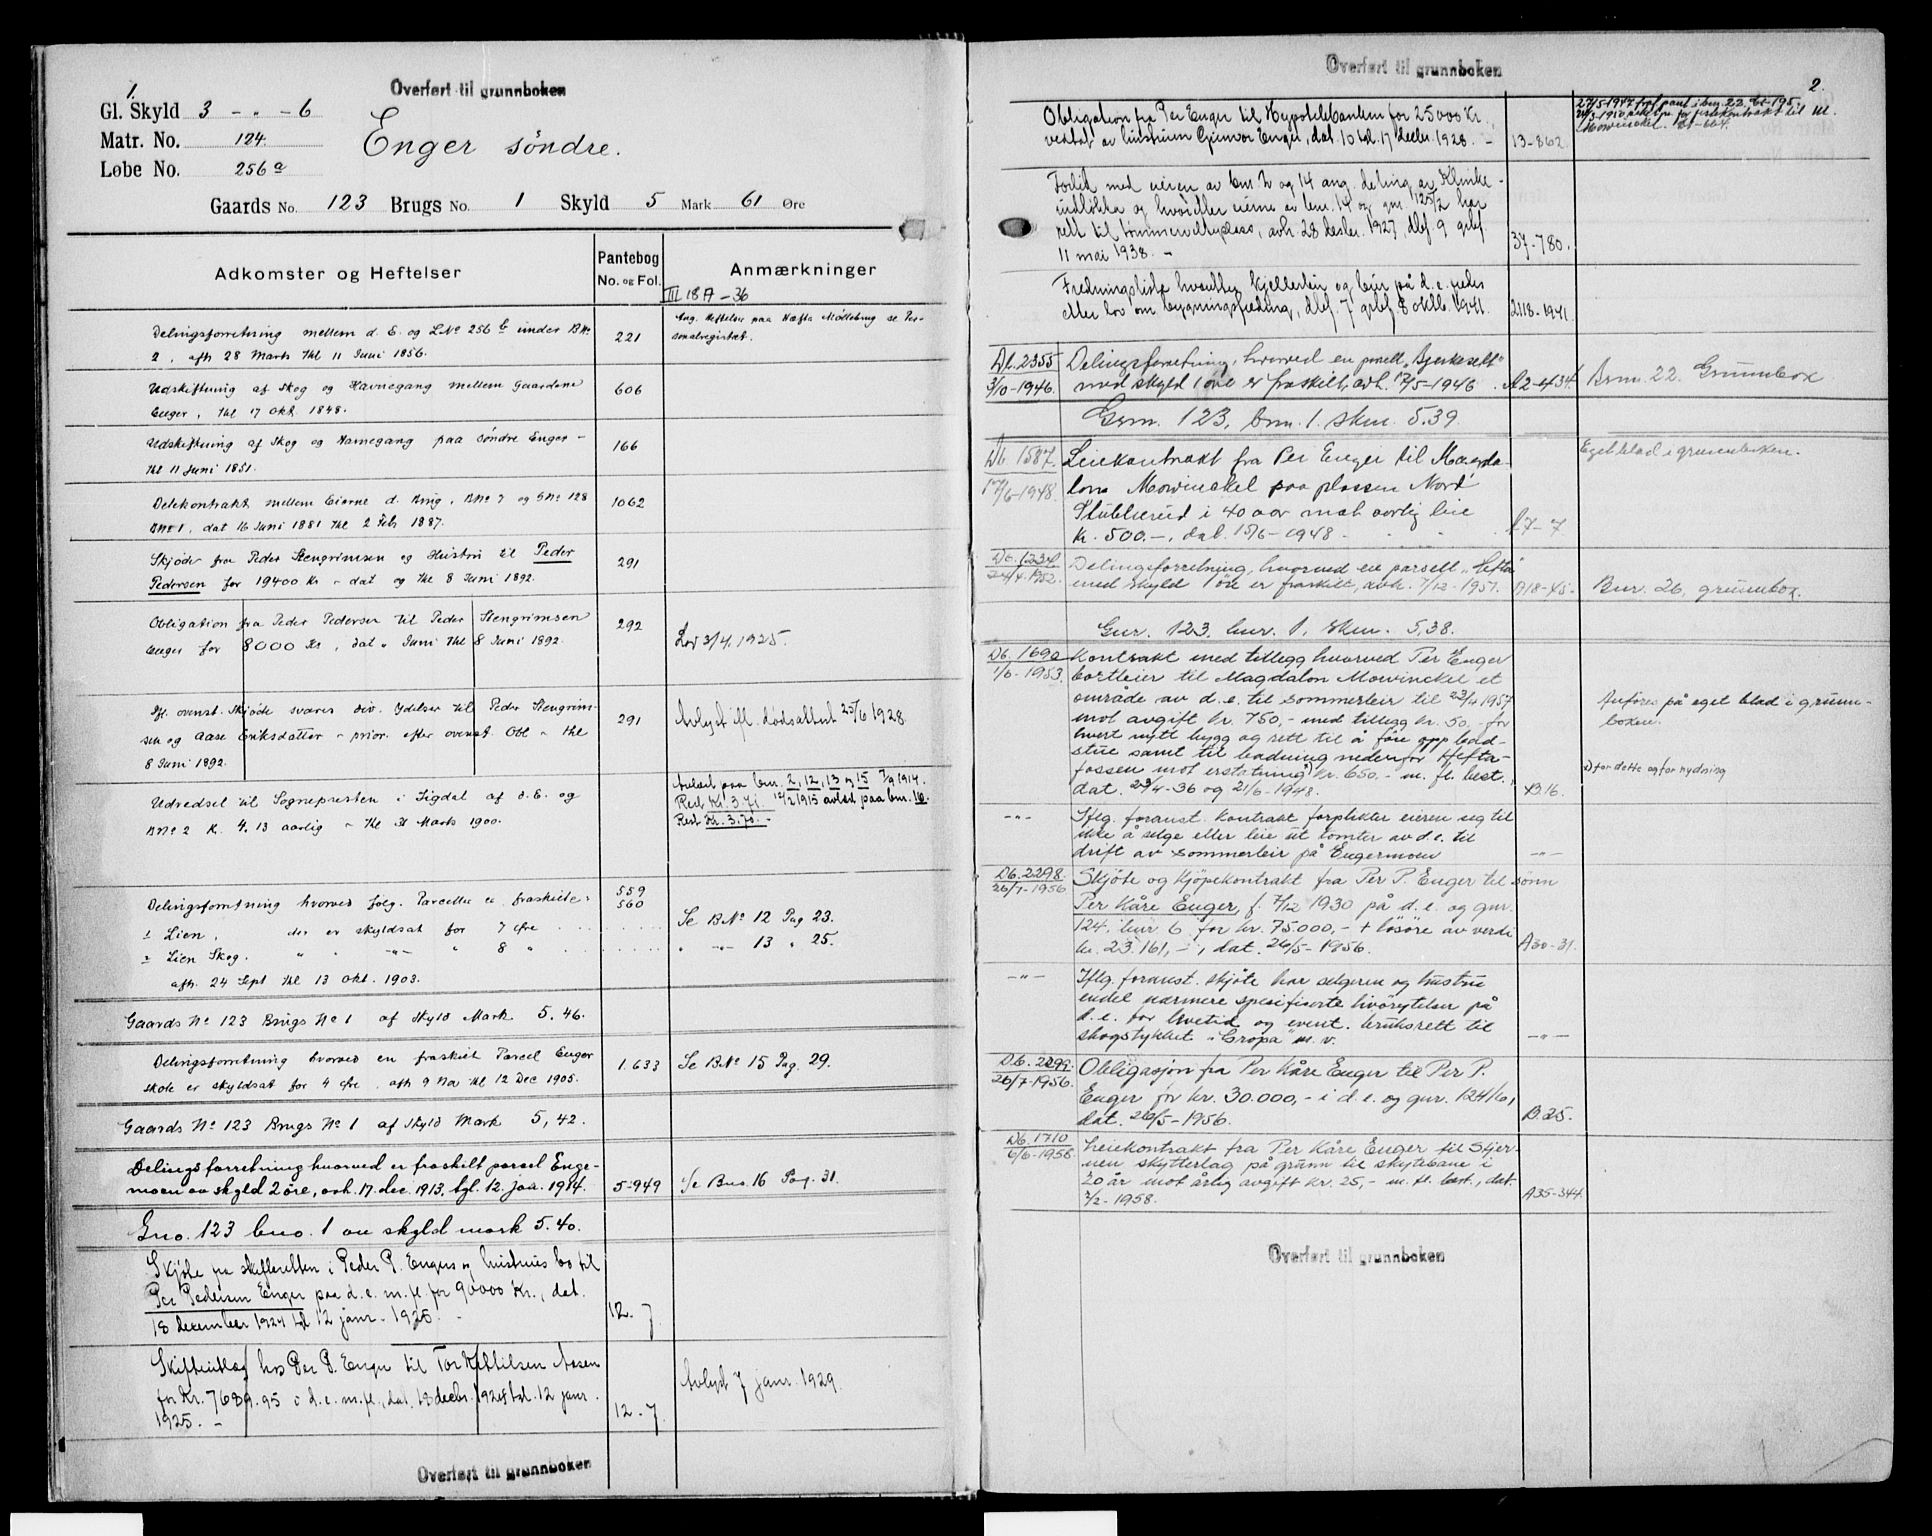 1.
Overført til grunnboken
Gl. Skyld 3 - " - 6
Matr. No. 124
Løbe No. 256 a
Enger søndre.
Gaards No. 123 Brugs No. 1 Skyld 5 Mark 61 Øre
Adkomster og Heftelser
Pantebog
No. og Fol.
Anmærkninger
III 18 A - 36
Ang. Heftelser paa Hæfta Møllebrug se Per-
sonalregistret.
Delingsforretning mellem d. E. og LNo 256 b under BNo 221
2, afh 28 Marts thl 11 Juni 1856.
Udskiftning af Skog og Havnegang mellem Gaardene 606
Enger, thl 17 Okt 1848.
Udskiftning af Skog og Havnegang paa søndre Enger - 166
thl 11 Juni 1851.
Delekontrakt mellem Eierne d. Brug, BNo 7 og GNo 128 1062
BNo 1, dat 16 Juni 1881 thl 2 Feb 1887.
Skjøde fra Peder Stengrimsen og Hustru til Peder 291
Pedersen for 19400 Kr - dat og thl 8 Juni 1892.
Obligation fra Peder Pedersen til Peder Stengrimsen 292
Enger for 8000 Kr, dat " Juni thl 8 Juni 1892. Lov 3/4 1925.
Ifl. ovenst. Skjøde svares div. Ydelser til Peder Stengrim- 291
sen og Aase Eriksdatter - prior. efter ovenst. Obl - thl
8 Juni 1892.
Avlyst ifl. dødsattest 25/6 1928.
Udredsel til Sognepresten i Sigdal af d. E. og
BNo 2 K. 4,13 aarlig - thl 31 Marts 1900.
Avløst paa bnr. 2, 12, 13 og 15 7/9 1914.
Rest Kr. 3.71. 12/2 1915 avløst paa bnr. 16.
Rest Kr. 3.70. -
Delingsforretning hvorved følg. Parceller er fraskilte: 559
560
1 Lien, der er skyldsat for 7 Øre Se BNo 12 Pag 23.
2 Lien Skog. " " -"- " 8 " " -"- 13 " 25.
afh. 24 Sept thl 13 Okt. 1903.
Gaards No 123 Brugs No 1 af Skyld Mark 5,46.
Delingsforretning hvorved en fraskilt Parcel Enger 1.633 Se BNo 15 Pag. 29.
skole er skyldsat for 4 Øre, afh 9 No thl 12 Dec 1905.
Gaards No 123 Brugs No 1 af Skyld Mark 5,42.
Delingsforretning hvorved er fraskilt parsel Enge-
moen av skyld 2 øre, avh. 17. dec. 1913, tgl. 12. jan. 1914. 5-949 Se Bno. 16 Pag. 31.
Gno. 123 bno. 1 av skyld mark 5.40.
Skjøte fra skifteretten i Peder P. Engers og hustrus bo til
Per Pedersen Enger paa d. e. m. fl. for 90000 Kr., dat.
18 desember 1924 tgl 12 janr. 1925. - 12. 7
Skifteutlæg hos Per P. Enger til Tor Ketilsen Aasen
for Kr. 7689.95 i d. e. m. fl., dat. 18 decbr. 1924 tgl. 12 janr.
1925. - 12 - 7
Avlyst 7 janr. 1929.
Overført til grunnboken
Overført til grunnboken
2.
Obligation fra Per Enger til Hypotekbanken for 25000 Kr.,
vedtat av hustruen Gunvor Enger, dat. 10 tgl. 17 decbr. 1928. - 13-862
Forlik med eieren av bnr. 2 og 14 ang. deling av Klinke-
udløkka og hvorefter eierne av bnr. 14 og gnr. 125/2 har
rett til tømmervelteplass, avh. 28 desbr. 1927, dbf. 9 grbf.
11 mai 1938. - 37-780.
Fredningsliste hvoretter kjellerlein og bur på d. e. fredes
etter lov om bygningsfredning, dbf. 7 grbf. 8 oktb. 1941. 2118-1941.
Db. 2355
3/10-1946.
Delingsforretning, hvorved en parsell "Bjerkesett"
med skyld 1 øre er fraskilt, avh. 17/5-1946. A2-434 Bnr. 22. Grunnbok
Grnr. 123, bnr. 1. Skm. 5.39.
Db 1587.
17/6-1948.
Leiekontrakt fra Per Enger til Magda-
lon Mowinckel paa plassen Nord
Stubberud i 40 aar mot aarlig leie
kr. 500.-, dat. 15/6-1948. A7-7
Eget blad i grunnboken.
Db. 1234
24/4-1952.
Delingsforretning, hvorved en parsell "Hefta"
med skyld 1 øre er fraskilt, avh. 7/12-1951. A18-45. Bnr. 26, grunnbok.
Gnr. 123, bnr. 1, Skm. 5,38.
Db. 1690
1/6-1953.
Kontrakt med tillegg hvorved Per Enger
bortleier til Magdalon Mowinckel et
område av d. e. til sommerleir til 23/4 1957
mot avgift kr. 750,- med tillegg kr. 50,- for
hvert nytt bygg og rett til å føre opp bad-
stue samt til badning nedenfor Hefta-
fossen mot erstatning x) kr. 650.- m. fl. best.,
dat. 29/4-36 og 21/6-1948. B16.
Anføres på eget blad i grunn-
boken.
x) for dette og for rydning
-"- Iflg. foranst. kontrakt forplikter eieren seg til
ikke å selge eller leie ut tomter av d. e. til
drift av sommerleir på Engermoen -"-
Db. 2298
26/7-1956
Skjøte og kjøpekontrakt fra Per P. Enger til sønn
Per Kåre Enger, f. 7/12 1930 på d. e. og gnr.
124, bnr 6 for kr. 75.000,- + løsøre av verdi
kr. 23.161,-, dat. 26/5-1956. A30-31.
-"- Iflg. foranst. skjøte har selgeren og hustru
endel nærmere spesifiserte livørytelser på
d. e. for livetid og event. bruksrett til
skogstykket "Cropa" m. v. -"-
Db. 2299.
26/7-1956.
Obligasjon fra Per Kåre Enger til Per P.
Enger for kr. 30.000,- i d. e. og gnr. 124/6,
dat. 26/5-1956. B.25.
Db. 1710
6/6-1958
Leiekontrakt fra Per Kåre Enger til Stjer-
nen skytterlag på grunn til skytebane i
20 år mot årlig avgift kr. 25,- m. fl. best., dat.
2/2-1958. A35-344
Overført til grunnboken